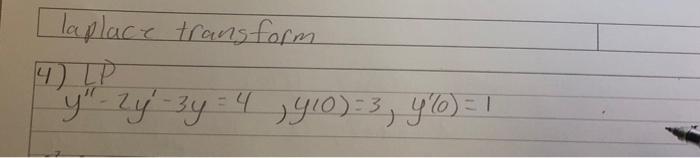 laplace transform
4) LP
y" - 2y' - 3y = 4 , y(0) = 3, y'(0) = 1